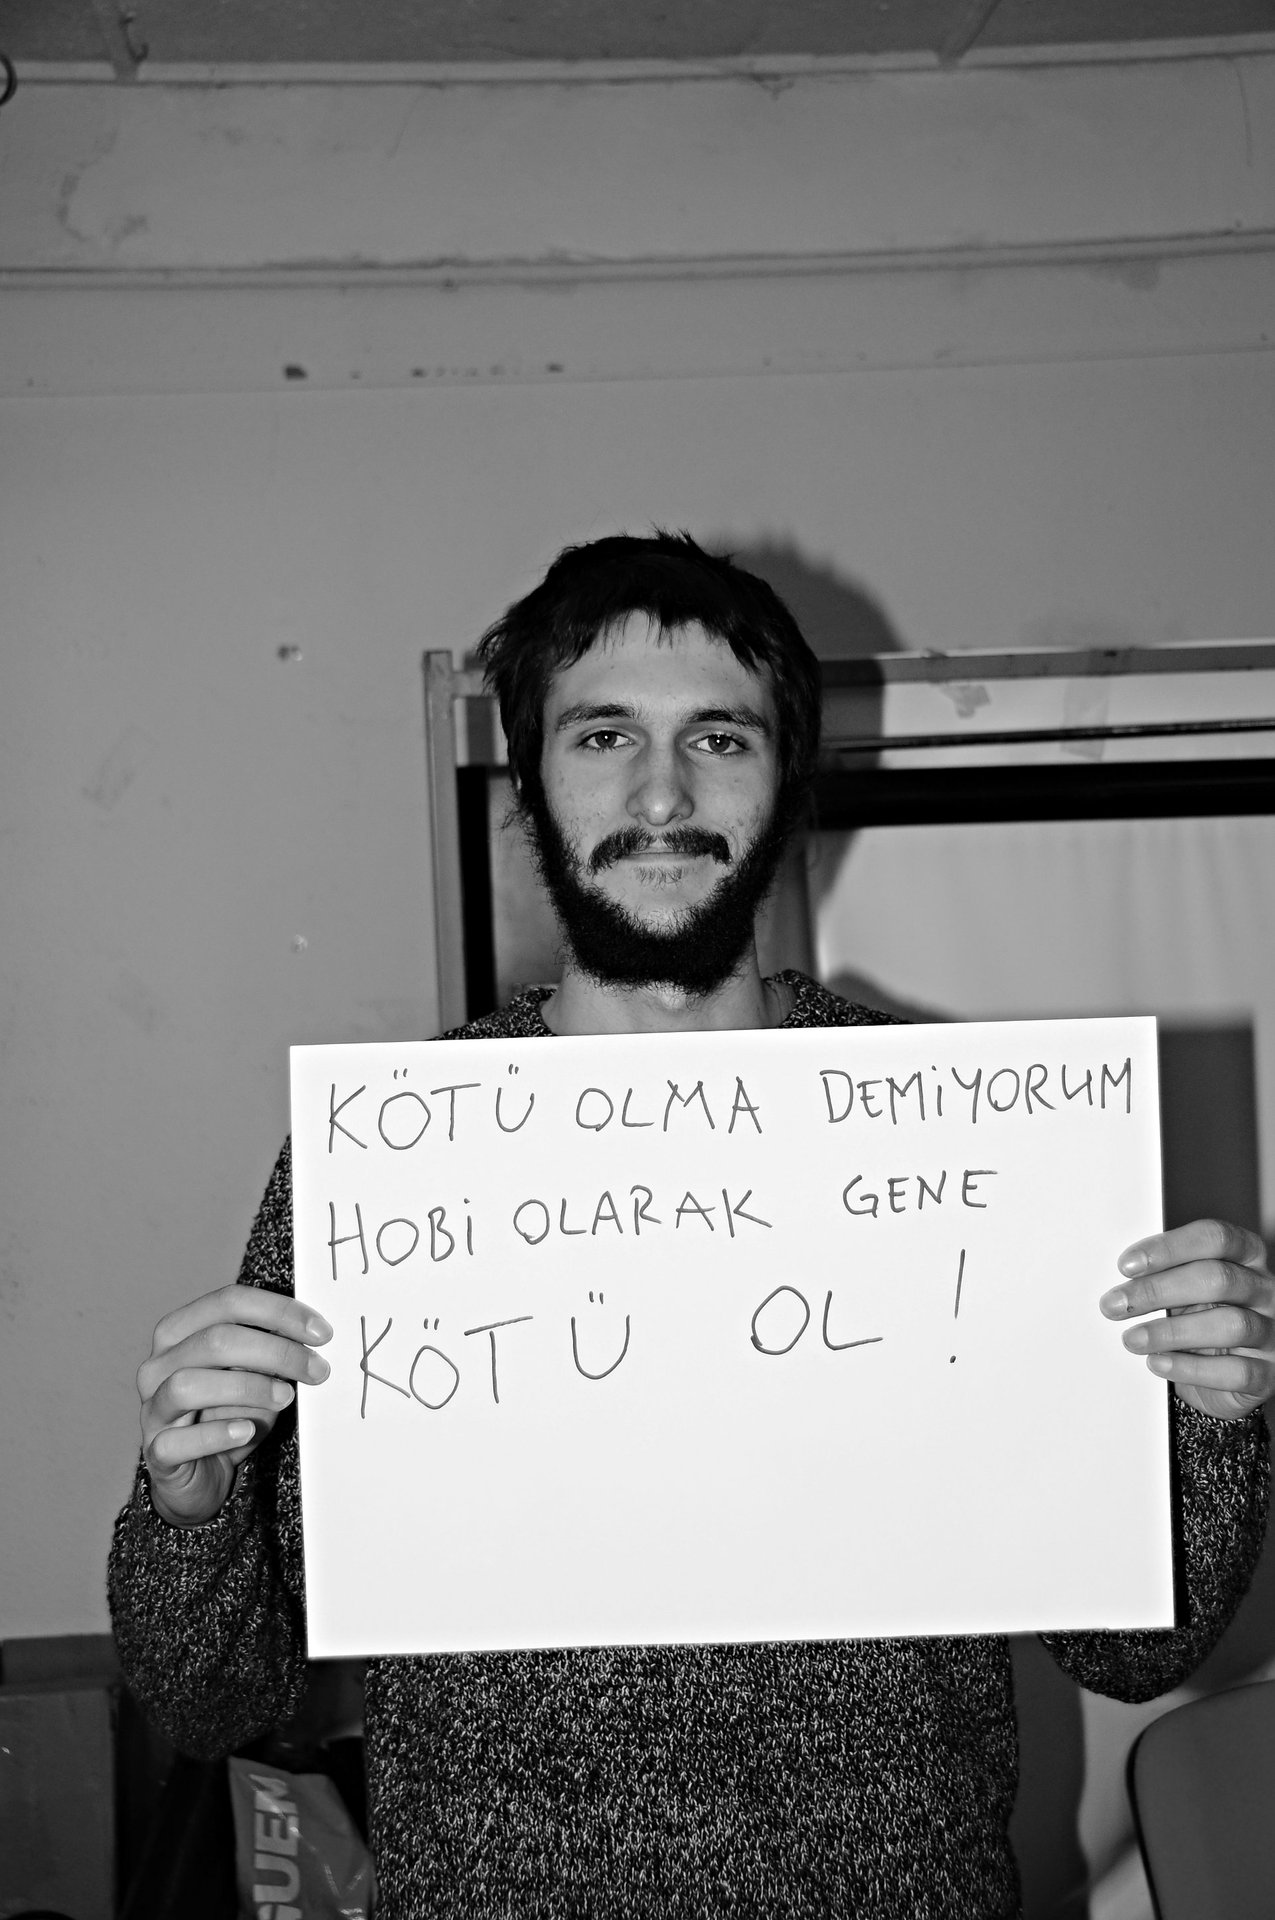 KÖTÜ OLMA DEMİYORUM
HOBİ OLARAK GENE
KÖTÜ OL !